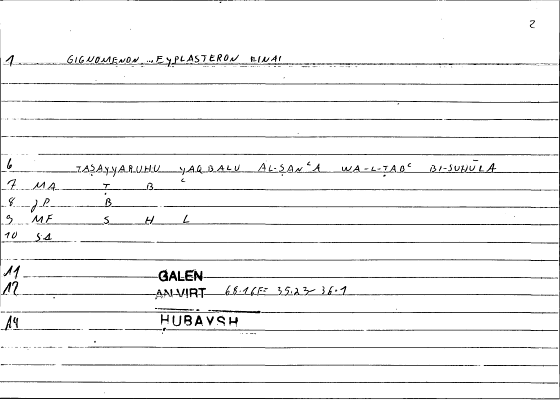 2
1 GIGNOMENON...EYPLASTERON EINAI
6 TAṢAYYARUHU YAQBALU AL-ṢANᶜA WA-L-ṬABᶜ BI-SUHŪLA
7 MA Ṭ B ᶜ
8 JP B
9 MF S H L
10 SA
11 GALEN
12 AN.VIRT 68.16F= 35.23-36.1
14 ḤUBAYSH